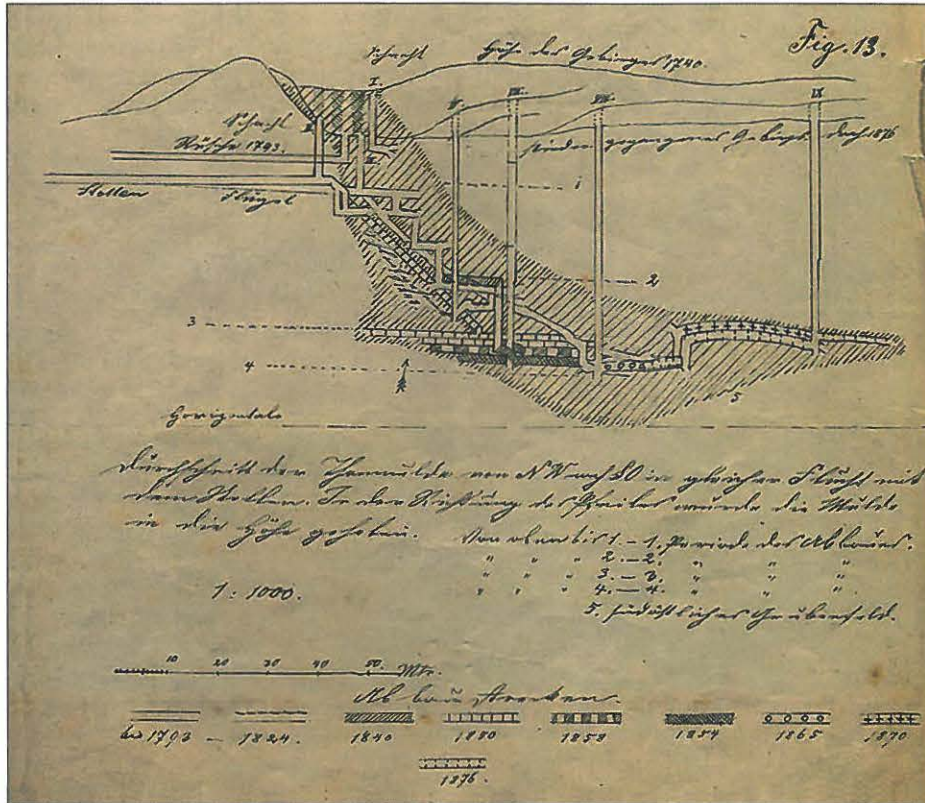 Fig. 13.
Schacht
Höhe des Gebirges 1740.
I.
II.
V.
VI.
VII.
IX
Schacht
Rösche 1793.
niedergegangenes Gebirge nach 1876
Stollen Flügel
1
2
3
4
5
Horizontale
Durchschnitt der Thonmulde von NW nach SO in gleicher Flucht mit
dem Stollen. In der Richtung des Pfeiles wurde die Mulde
in die Höhe gehoben.
Von oben bis 1. – 1. Periode des Abbaues.
" " " 2. – 2. " " "
" " " 3. – 3. " " "
" " " 4. – 4. " " "
5. südöstliches Grubenfeld.
1 : 1000.
10 20 30 40 50 Mtr.
Abbaustrecken.
bis 1793 – 1824. 1840 1850 1858 1854 1865 1870
1876.